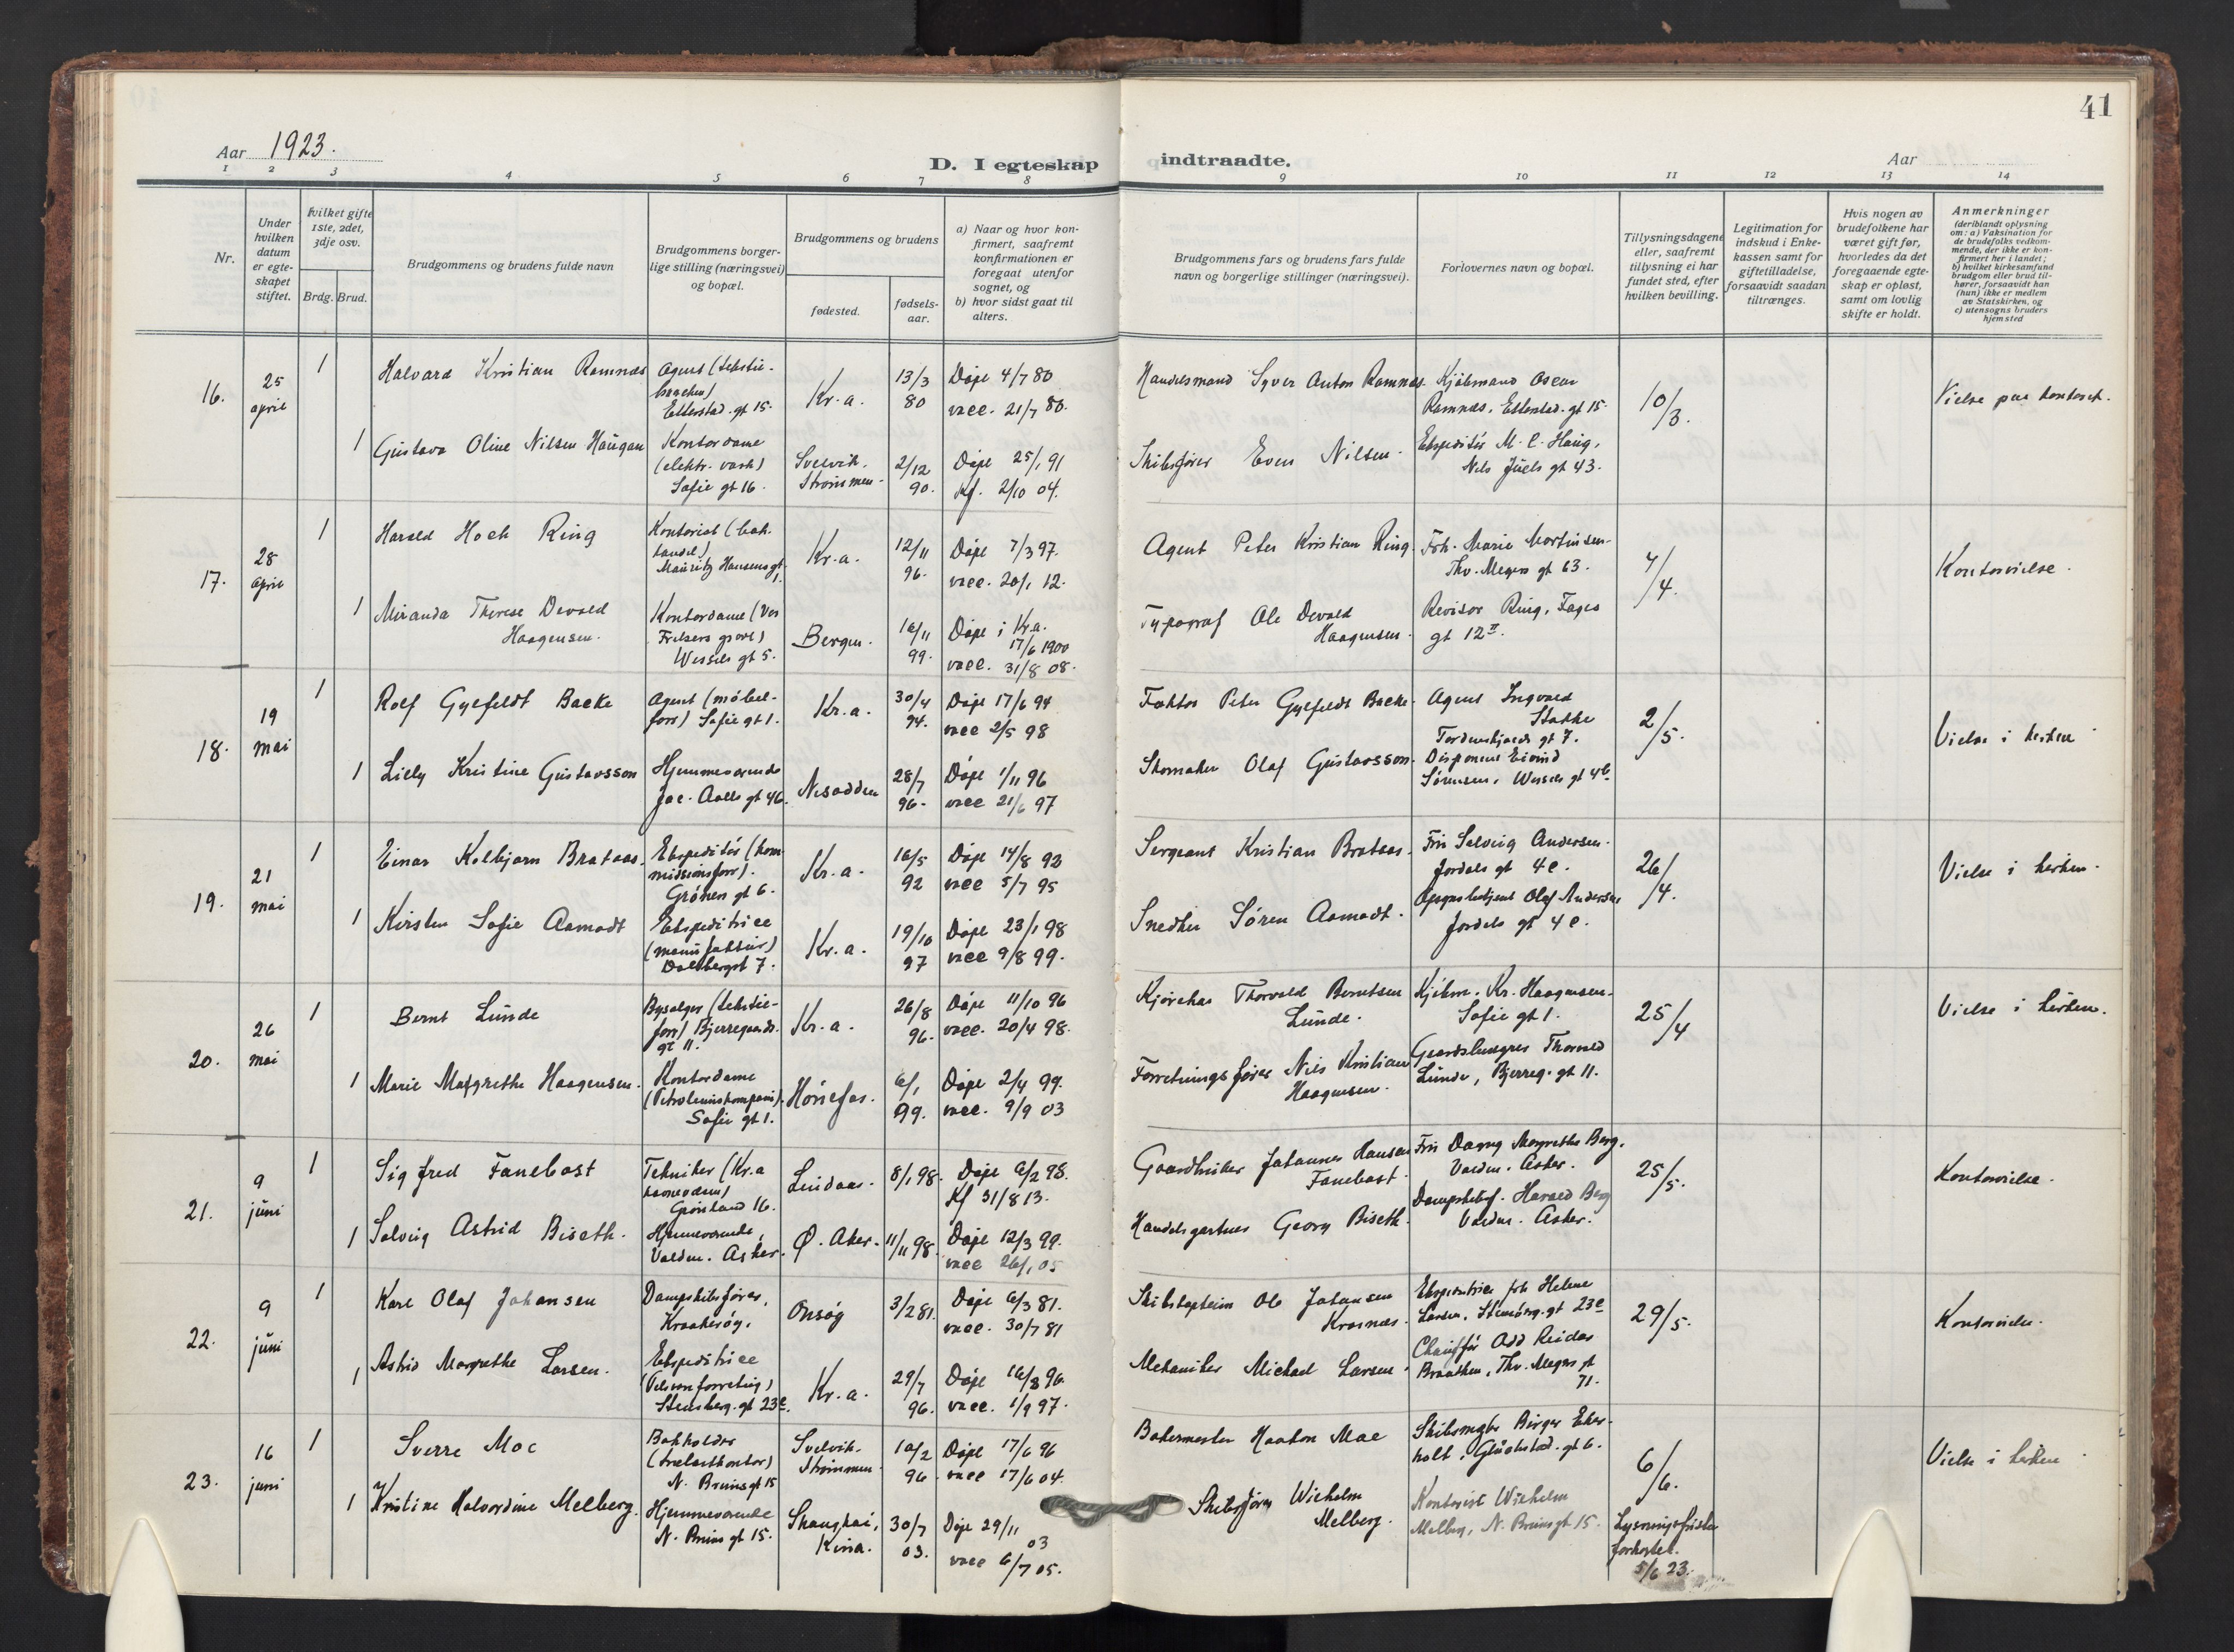 41
Aar 1923.
D. I egteskap indtraadte.
Aar
1 2 3 4 5 6 7 8 9 10 11 12 13 14
Nr.
Under hvilken datum er egteskapet stiftet.
hvilket gifte 1ste, 2det, 3dje osv.
Brdg. Brud.
Brudgommens og brudens fulde navn
Brudgommens borgerlige stilling (næringsvei) og bopæl.
Brudgommens og brudens
fødested.
fødselsaar.
a) Naar og hvor konfirmert, saafremt konfirmationen er foregaat utenfor sognet, og
b) hvor sidst gaat til alters.
Brudgommens fars og brudens fars fulde navn og borgerlige stillinger (næringsvei).
Forlovernes navn og bopæl.
Tillysningsdagene eller, saafremt tillysning ei har fundet sted, efter hvilken bevilling.
Legitimation for indskud i Enkekassen samt for giftetilladelse, forsaavidt saadan tiltrænges.
Hvis nogen av brudefolkene har været gift før, hvorledes da det foregaaende egteskap er opløst, samt om lovlig skifte er holdt.
Anmerkninger (deriblandt oplysning om: a) Vaksination for de brudefolks vedkommende, der ikke er konfirmert her i landet; b) hvilket kirkesamfund brudgom eller brud tilhører, forsaavidt han (hun) ikke er medlem av Statskirken, og c) utensogns bruders hjemsted
16. 25 april 1 Halvard Kristian Ramnæs Agent Etterstad. gt 15. Kr.a. 13/3 80 Døpt 4/7 80 vacc. 21/7 80. Handelsmand Syver Anton Ramnæs. Kjøbmand Oscar Ramnæs, Etterstad. gt 15. 10/3. Vielse paa kontoret.
1 Gustava Oline Nilsen Haugan Kontordame (elektr. verk) Sofie gt 16. Svelvik. Strømmen. 2/12 90. Døpt 25/1 91 Kf. 2/10 04. Skibsfører Even Nilsen. Ekspeditør M. C. Haug, Nils Juels gt 43.
17. 28 april 1 Harald Hoch Ring Kontorist Mauritz Hansens gt 1. Kr.a. 12/11 96. Døpt 7/3 97. vacc. 20/1 12. Agent Peter Kristian Ring. Frk. Marie Mortinsen. Thv. Meyers gt 63. 4/4. Kontorvielse.
1 Miranda Therese Devold Haagensen. Kontordame Wessels gt 5. Bergen. 16/11 99. Døpt i Kr.a. 17/6 1900 vacc. 31/8 08. Typograf Ole Devold Haagensen. Revisor Ring, Fages gt 12 II.
18. 19 mai 1 Rolf Gylfeldt Backe Agent (møbelforr) Sofie gt 1. Kr.a. 30/4 94. Døpt 17/6 94 vacc 2/5 98 Faktor Peter Gylfeldt Backe. Agent Ingvald Tordenskjolds gt 7. 2/5. Vielse i kirken
1 Lilly Kristine Gustavsson Hjemmeværende Jac. Aalls gt 46. Nesodden 28/7 96. Døpt 1/11 96 vacc 21/6 97 Skomaker Olaf Gustavsson. Disponent Eivind Sørensen, Wessels gt 4b.
19. 21 mai 1 Einar Kolbjørn Brataas. Ekspeditør (kommissionsforr). Grønen gt 6. Kr.a. 16/5 92 Døpt 14/8 92 vacc 5/7 95 Sergeant Kristian Brataas. Fru Solveig Andersen. Jordals gt 4 e. 26/4. Vielse i kirken.
1 Kirsten Sofie Aamodt Ekspeditrice (manufaktur) Dalsbergst 7. Kr.a. 19/10 97 Døpt 23/1 98 vacc 9/8 99. Snedker Søren Aamodt. Olaf Andersen Jordals gt 4 e.
20. 26 mai 1 Bernt Lunde Bysælger (tekstilforr) Bjerregaards. gt 11. Kr.a. 26/8 96. Døpt 11/10 96 vacc. 20/4 98. Kjørekar Thorvald Berntsen Lunde. Kjøbm. Kr. Haagensen. Sofie gt 1. 25/4 Vielse i kirken.
1 Marie Margrethe Haagensen. Kontordame (Petroleumskompani). Sofie gt 1. Hønefos. 6/1 99. Døpt 2/4 99. vacc. 9/9 03 Forretningsfører Nils Kristian Haagensen. Thorvald Lunde, Bjerreg. gt 11.
21. 9 juni 1 Sigfred Fanebost Tekniker Grønland 16. Lindaas. 8/1 98. Døpt 6/2 98. Kf 31/8 13. Gaardbruker Johannes Hansen Fanebost. Fru Dagny Margrethe Berg. Valden. Asker. 25/5. Kontorvielse.
1 Solveig Astrid Biseth. Hjemmeværende, Valden. Asker. Ø. Aker. 11/11 98. Døpt 12/3 99. vacc 26/1 05 Handelsgartner Georg Biseth. Harald Berg Valden. Asker.
22. 9 juni 1 Karl Olaf Johansen Dampskibsfører, Kraakerøy. Onsøy 3/2 81. Døpt 6/3 81. vacc. 30/7 81 Skibskaptein Ole Johansen Krosnæs. Ekspeditrice frk Helene Larsen, Stensberg. gt 23 e 29/5. Kontorvielse.
1 Astrid Margrethe Larsen. Ekspeditrice Stensberg. gt 23 e. Kr.a. 29/7 96. Døpt 16/8 96. vacc. 1/9 97. Mekaniker Michael Larsen. Chauffør Odd Reidar Braathen, Thv. Meyers gt 71.
23. 16 juni 1 Sverre Moe Bokholder (trælastkontor) N. Bruns gt 15 Svelvik. Strømmen 10/2 96 Døpt 17/6 96 vacc 17/6 04. Bakermester Haakon Moe Skibsmegler Birger Ekerholt, Gluckstad. gt 6. 6/6. Vielse i kirken
1 Kristine Halvordine Melberg. Hjemmeværende N. Bruns gt 15. Shanghai, Kina. 30/7 03. Døpt 29/11 03 vacc 6/7 05. Skibsfører Wilhelm Melberg. Kontorist Wilhelm Melberg, N. Bruns gt 15. Lysningsfristen forkortet. 5/6 23.